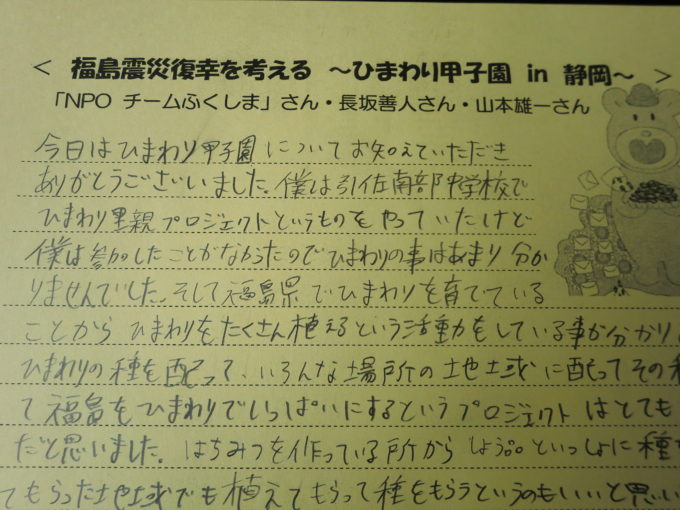 ＜ 福島震災復幸を考える ～ひまわり甲子園 in 静岡～ ＞
「NPO チームふくしま」さん・長坂善人さん・山本雄一さん
今日はひまわり甲子園についてお知えていただき
ありがとうございました。僕は引佐南部中学校で
ひまわり里親プロジェクトというものをやっていたけど
僕は参加したことがなかったのでひまわりの事はあまり分か
りませんでした。そして福島県でひまわりを育てている
ことからひまわりをたくさん植えるという活動をしている事が分かり
ひまわりの種を配って、いろんな場所の地域に配ってその
て福島をひまわりでいっぱいにするというプロジェクトはとても
だと思いました。はちみつを作っている所から といっしょに種
てもらった地域でも植えてもらって種をもらうというのもいいと思い